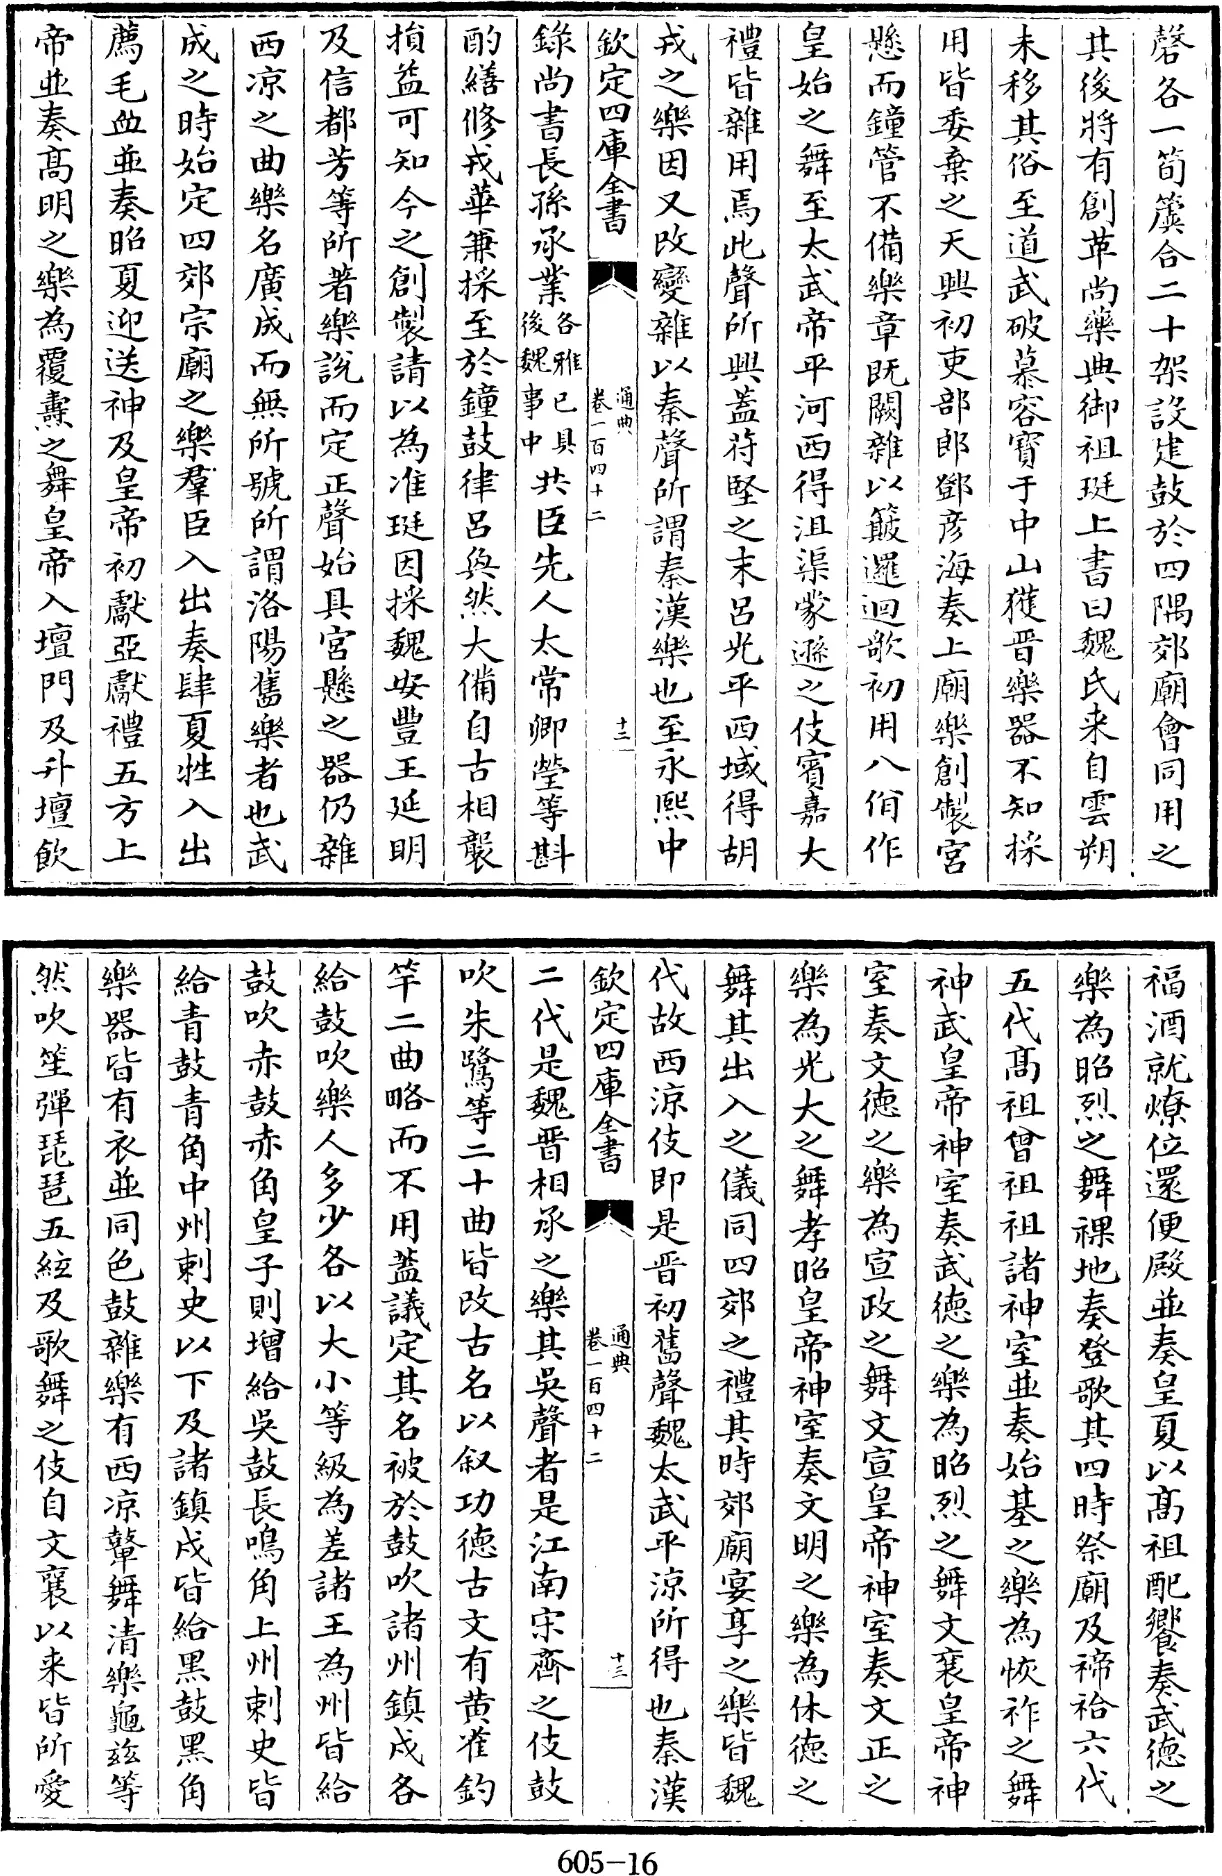 磬各一簨簴合二十架設建鼓於四隅郊廟會同用之
其後將有創革尚藥典御祖珽上書曰魏氏来自雲朔
未移其俗至道武破慕容寳于中山獲晋樂器不知採
用皆委棄之天興初吏部郎鄧彦海奏上廟樂創製宫
懸而鐘管不備樂章旣闕雜以簸邏迴歌初用八佾作
皇始之舞至太武帝平河西得沮渠蒙遜之伎賓嘉大
禮皆雜用焉此聲所興蓋苻堅之末吕光平西域得胡
戎之樂因又改變雜以秦聲所謂秦漢樂也至永熙中
欽定四庫全書
通典
卷一百四十二
十三
錄尚書長孫承業各雅已具後魏事中共臣先人太常卿瑩等斟
酌繕修戎華兼採至於鐘鼓律吕奐然大備自古相襲
損益可知今之創製請以為准珽因採魏安豐王延明
及信都芳等所著樂說而定正聲始具宫懸之器仍雜
西凉之曲樂名廣成而無所號所謂洛陽舊樂者也武
成之時始定四郊宗廟之樂羣臣入出奏肆夏牲入出
薦毛血並奏昭夏迎送神及皇帝初獻亞獻禮五方上
帝並奏高明之樂為覆燾之舞皇帝入壇門及升壇飲
福酒就燎位還便殿並奏皇夏以高祖配饗奏武德之
樂為昭烈之舞祼地奏登歌其四時祭廟及禘祫六代
五代高祖曾祖祖諸神室並奏始基之樂為恢祚之舞
神武皇帝神室奏武德之樂為昭烈之舞文襄皇帝神
室奏文德之樂為宣政之舞文宣皇帝神室奏文正之
樂為光大之舞孝昭皇帝神室奏文明之樂為休德之
舞其出入之儀同四郊之禮其時郊廟宴享之樂皆魏
代故西涼伎即是晋初舊聲魏太武平涼所得也秦漢
欽定四庫全書
通典
卷一百四十二
十三
二代是魏晋相承之樂其吳聲者是江南宋齊之伎鼓
吹朱鷺等二十曲皆改古名以叙功德古文有黄雀釣
竿二曲略而不用蓋議定其名被於鼓吹諸州鎮戍各
給鼓吹樂人多少各以大小等級為差諸王為州皆給
鼓吹赤鼓赤角皇子則增給吳鼓長鳴角上州剌史皆
給青鼓青角中州剌史以下及諸鎮戍皆給黑鼓黑角
樂器皆有衣並同色鼓雜樂有西凉鼙舞清樂龜兹等
然吹笙彈琵琶五絃及歌舞之伎自文襄以来皆所愛
605-16